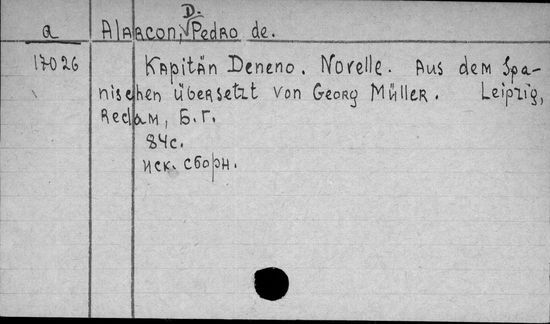 D.
a Alarcon, Pedro de.
17026 Kapitän Deneno. Novelle. Aus dem Spa-
nischen übersetzt von Georg Müller. Leipzig,
Reclam, Б.Г.
84с.
иск. сборн.